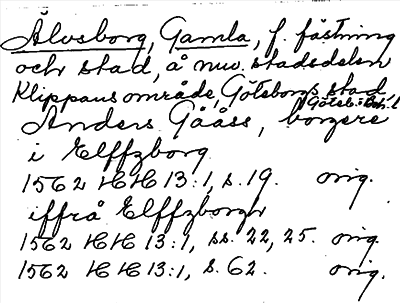 Älvsborg, Gamla, f. fästning
och stad, å nuv. stadsdelen
Klippans område, Göteborgs stad
Göteb. o. Boh. l.
Anders Gååss, borgere
i Elffzborg
1562 HH 13:1, s. 19. orig.
iffrå Elffzborgh
1562 HH 13:1, ss. 22, 25. orig.
1562 HH 13:1, s. 62. orig.